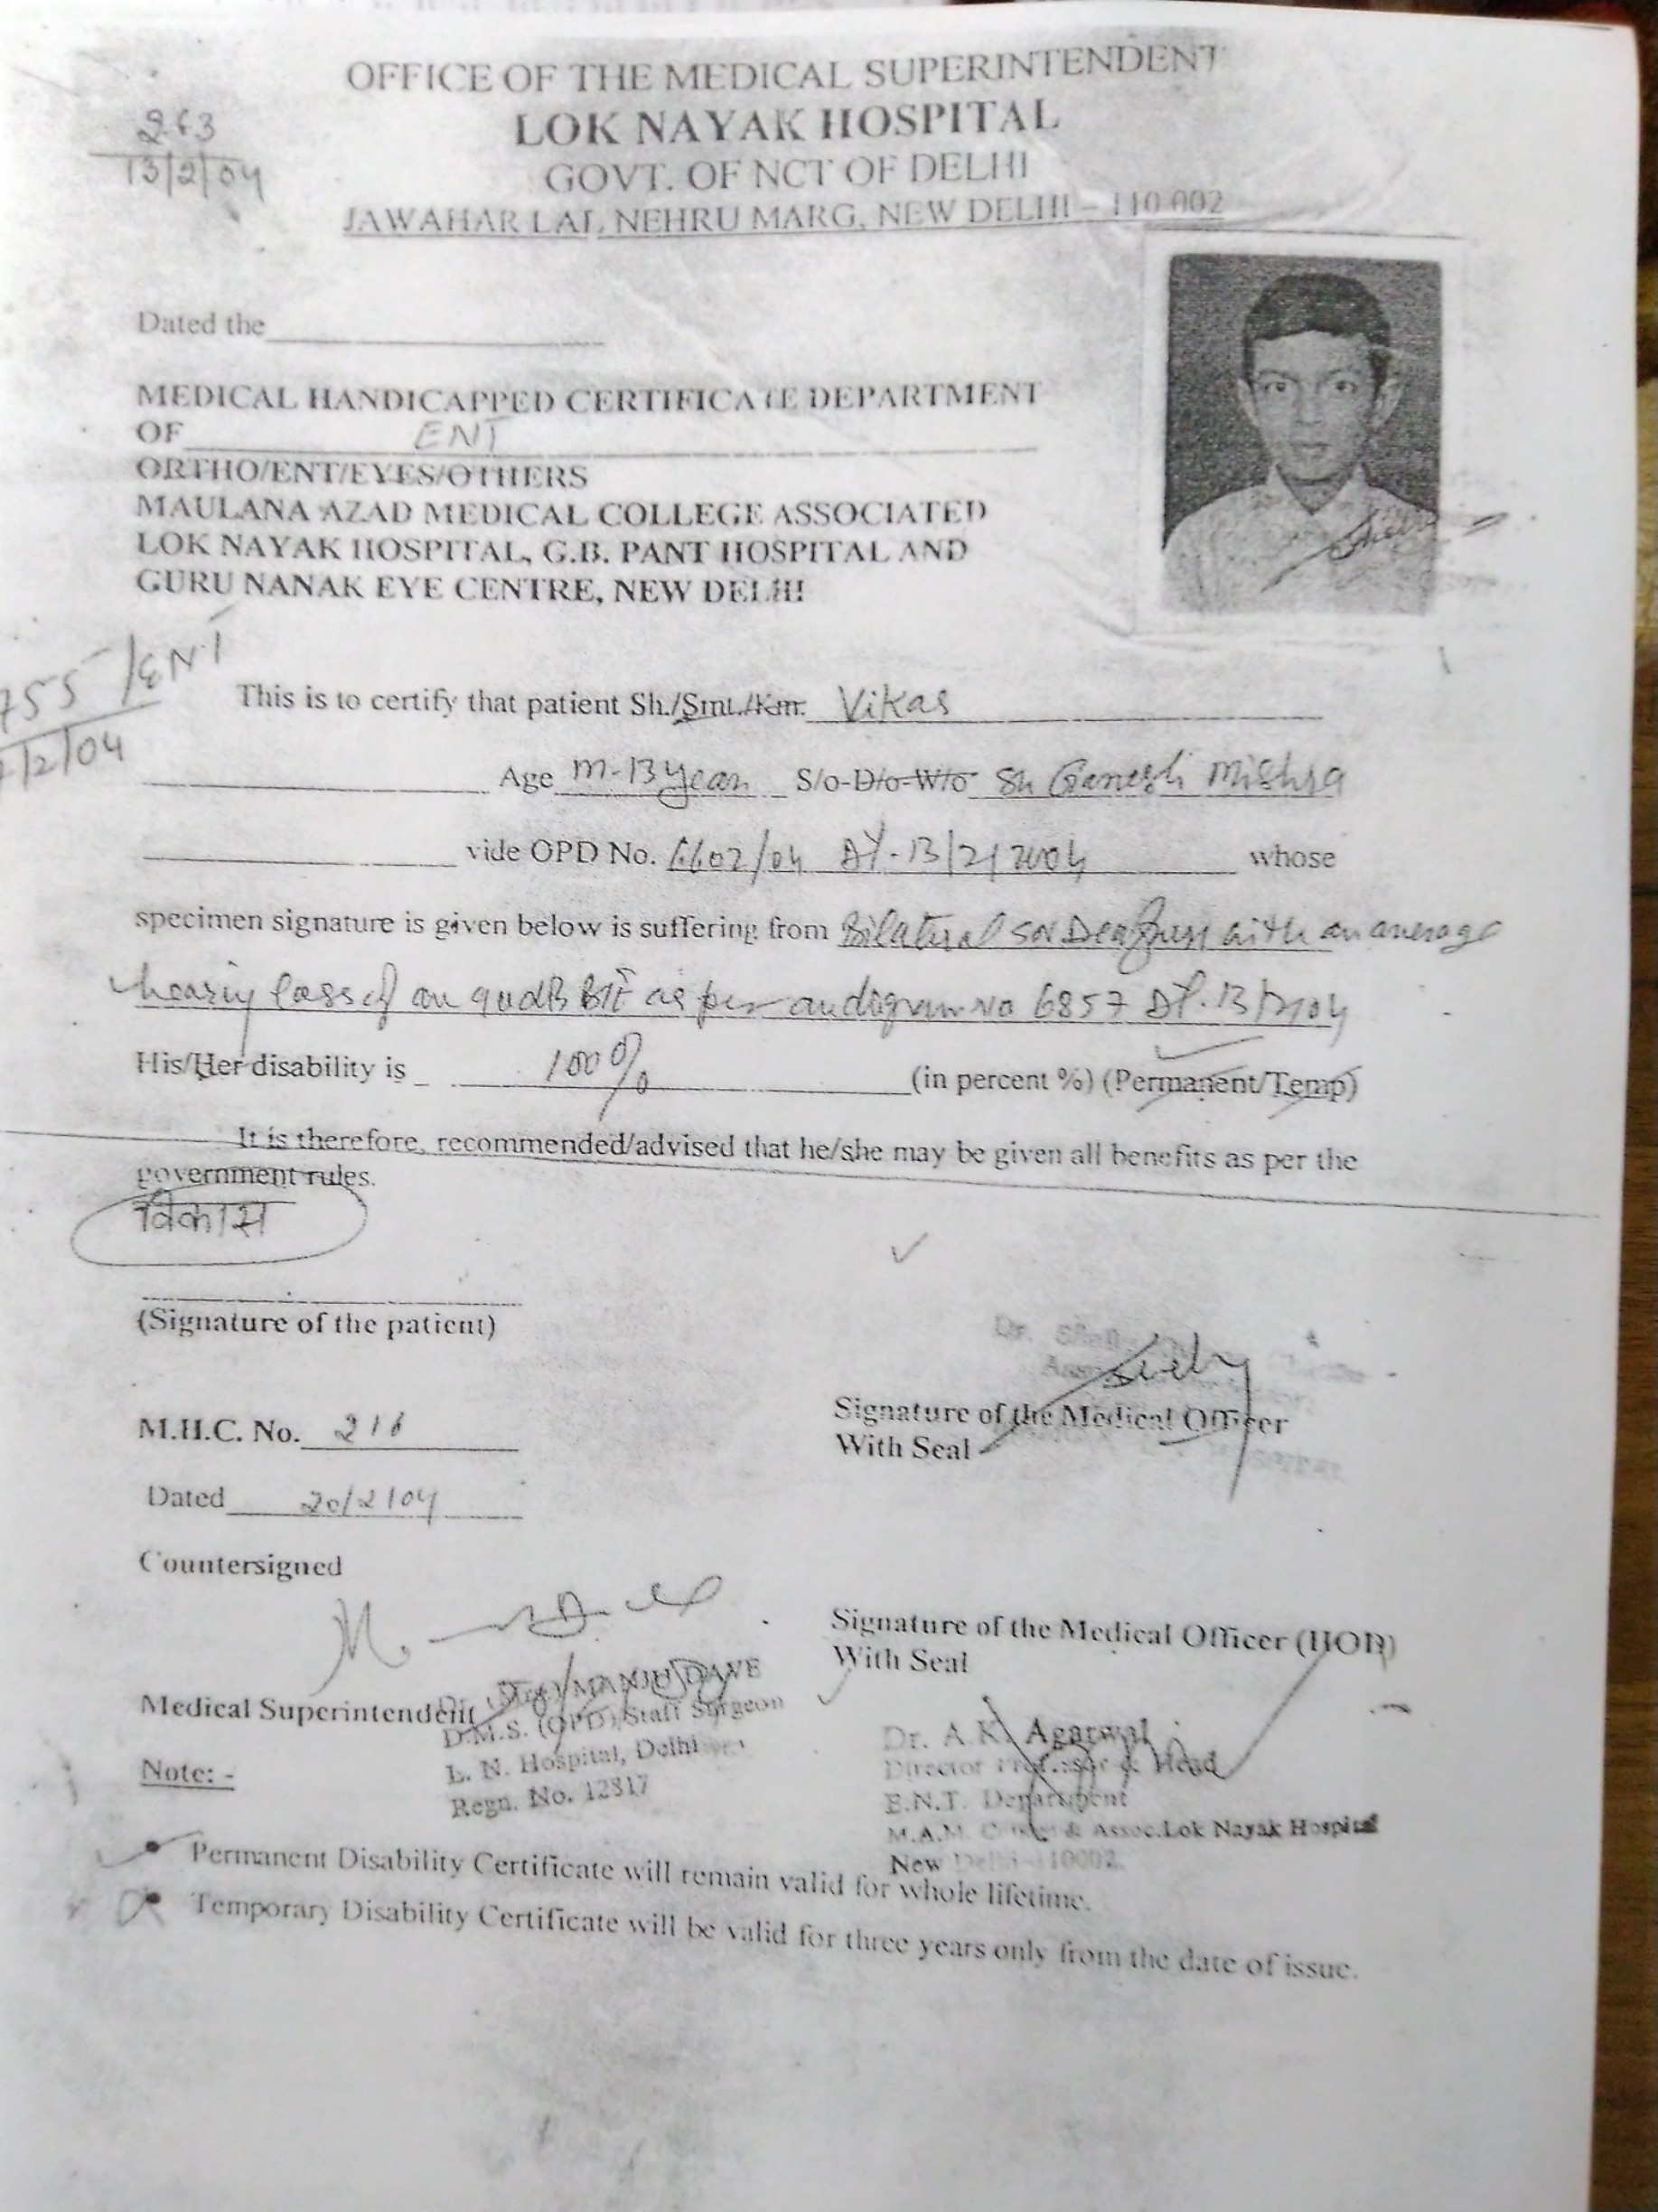 OFFICE OF THE MEDICAL SUPERINTENDENT
LOK NAYAK HOSPITAL
GOVT. OF NCT OF DELHI
JAWAHAR LAL NEHRU MARG, NEW DELHI – 110 002
13/2/04
Dated the
MEDICAL HANDICAPPED CERTIFICATE DEPARTMENT
OF ENT
ORTHO/ENT/EYES/OTHERS
MAULANA AZAD MEDICAL COLLEGE ASSOCIATED
LOK NAYAK HOSPITAL, G.B. PANT HOSPITAL AND
GURU NANAK EYE CENTRE, NEW DELHI
755/ENT
/2/04
This is to certify that patient Sh./Smt./Km. Vikas
Age M-13 year S/o-D/o-W/o Sh Ganesh Mishra
vide OPD No. DT-13/2/2004 whose
specimen signature is given below is suffering from Bilateral Deafness with an average
hearing loss of as per audiogram No 6857 DT. 13/2/04
His/Her disability is 100% (in percent %) (Permanent/Temp)
It is therefore, recommended/advised that he/she may be given all benefits as per the
government rules.
विकास
(Signature of the patient)
Dr.
Signature of the Medical Officer
With Seal
M.H.C. No. 216
Dated 20/2/04
Countersigned
Signature of the Medical Officer (HOD)
With Seal
Medical Superintendent
MANJU DAVE
D.M.S. (OPD)/Staff Surgeon
L. N. Hospital, Delhi
Regn. No. 12817
Dr. A.K. Agarwal
Director Professor & Head
E.N.T. Department
M.A.M. & Assoc. Lok Nayak Hospital
New Delhi-110002.
Note: -
• Permanent Disability Certificate will remain valid for whole lifetime.
• Temporary Disability Certificate will be valid for three years only from the date of issue.